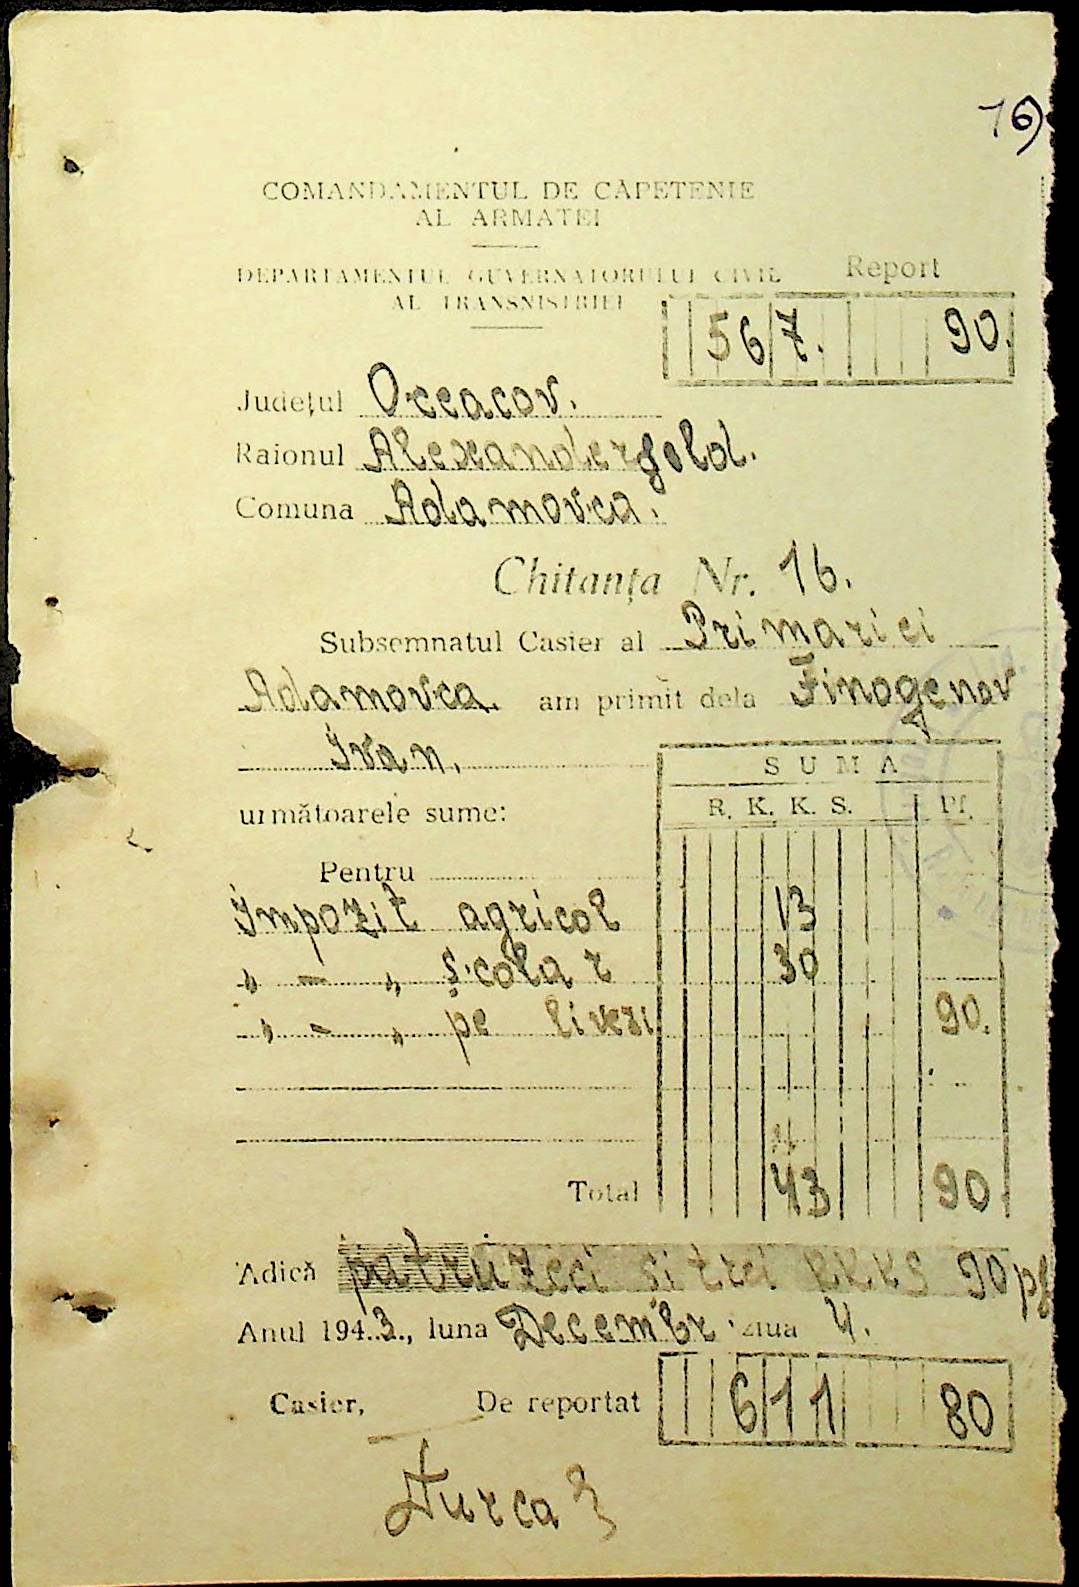 16
COMANDAMENTUL DE CĂPETENIE
AL ARMATEI
DEPARTAMENTUL GUVERNATORULUI CIVIL
AL TRANSNISTRIEI
Report
567. 90.
Județul Oceacov.
Raionul Alexanderfeld.
Comuna Adamovca.
Chitanța Nr. 16.
Subsemnatul Casier al Primariei
Adamovca. am primit dela Finogenov
Ivan.
următoarele sume:
SUMA
R. K. K. S. Pf.
Pentru
Impozit agricol 13
„ — „ școlar 30
„ — „ pe livezi 90.
Total 43 90
Adică patruzeci si trei RKKS 90 pf
Anul 1943., luna Decembr ziua 4.
Casier, De reportat 611 80